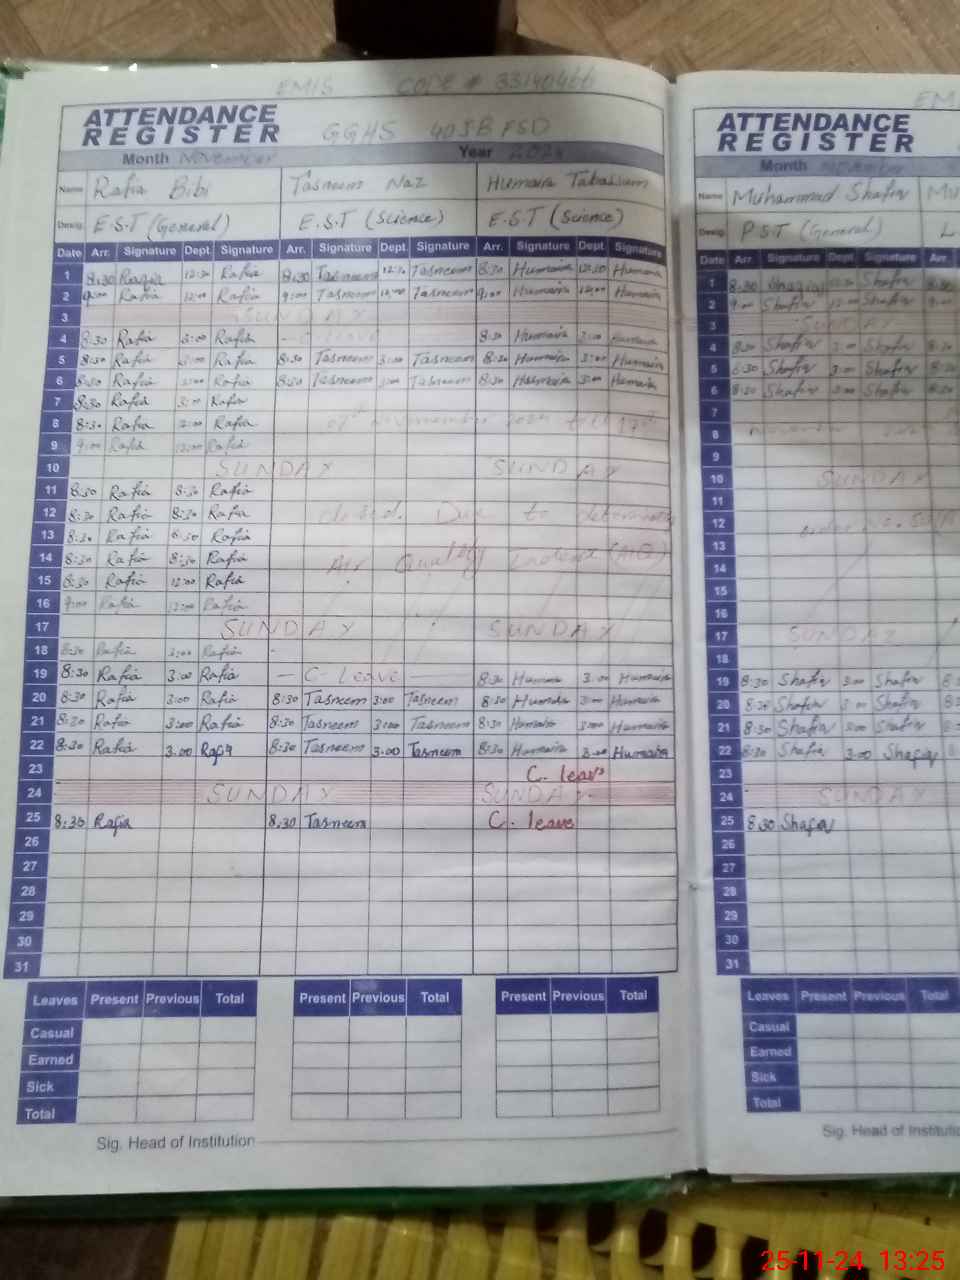 EMIS CODE # 33140466 EMI
ATTENDANCE REGISTER GGHS 40JB FSD
Month November Year 2024
Name Rafia Bibi Tasneem Naz Humaira Tabassum
Desig. E.S.T (General) E.S.T (Science) E.S.T (Science)
Date Arr. Signature Dept. Signature Arr. Signature Dept. Signature Arr. Signature Dept. Signature
1 8:30 Rafia 12:30 Rafia 8:30 Tasneem 12:30 Tasneem 8:30 Humaira 12:30 Humaira
2 9:00 Rafia 12:00 Rafia 9:00 Tasneem 12:00 Tasneem 9:00 Humaira 12:00 Humaira
3 SUNDAY
4 8:30 Rafia 3:00 Rafia leave 8:30 Humaira 3:00 Humaira
5 8:30 Rafia 3:00 Rafia 8:30 Tasneem 3:00 Tasneem 8:30 Humaira 3:00 Humaira
6 8:30 Rafia 3:00 Rafia 8:30 Tasneem 3:00 Tasneem 8:30 Humaira 3:00 Humaira
7 8:30 Rafia 3:00 Rafia
8 8:30 Rafia 12:00 Rafia November 2024 till 17th
9 9:00 Rafia 12:00 Rafia
10 SUNDAY SUNDAY
11 8:30 Rafia 8:30 Rafia
12 8:30 Rafia 8:30 Rafia closed. Due to
13 8:30 Rafia 8:30 Rafia
14 8:30 Rafia 8:30 Rafia Air Quality (AIQ)
15 8:30 Rafia 12:00 Rafia
16 9:00 Rafia 12:00 Rafia
17 SUNDAY SUNDAY
18 8:30 Rafia 3:00 Rafia
19 8:30 Rafia 3:00 Rafia — C- Leave — 8:30 Humaira 3:00 Humaira
20 8:30 Rafia 3:00 Rafia 8:30 Tasneem 3:00 Tasneem 8:30 Humaira 3:00 Humaira
21 8:30 Rafia 3:00 Rafia 8:30 Tasneem 3:00 Tasneem 8:30 Humaira 3:00 Humaira
22 8:30 Rafia 3.00 Rafia 8:30 Tasneem 3.00 Tasneem 8:30 Humaira 3.00 Humaira
23 C. leave
24 SUNDAY SUNDAY
25 8:30 Rafia 8.30 Tasneem C. leave
26
27
28
29
30
31
Leaves Present Previous Total Present Previous Total Present Previous Total
Casual
Earned
Sick
Total
Sig. Head of Institution
ATTENDANCE REGISTER
Month November
Name Muhammad Shafiq Mu
Desig. P.S.T (General)
Date Arr. Signature Dept. Signature Arr.
1 8:30 Shafiq 12:30 Shafiq 8:30
2 9:00 Shafiq 12:00 Shafiq 9:00
3 SUNDAY
4 8:30 Shafiq 3:00 Shafiq 8:30
5 8:30 Shafiq 3:00 Shafiq 8:30
6 8:30 Shafiq 3:00 Shafiq 8:30
7
8 November
9
10 SUNDAY
11
12
13
14
15
16
17 SUNDAY
18
19 8:30 Shafiq 3:00 Shafiq
20 8:30 Shafiq 3:00 Shafiq
21 8:30 Shafiq 3:00 Shafiq
22 8:30 Shafiq 3.00 Shafiq
23
24 SUNDAY
25 8.30 Shafiq
26
27
28
29
30
31
Leaves Present Previous Total
Casual
Earned
Sick
Total
Sig. Head of Institutio
25-11-24 13:25